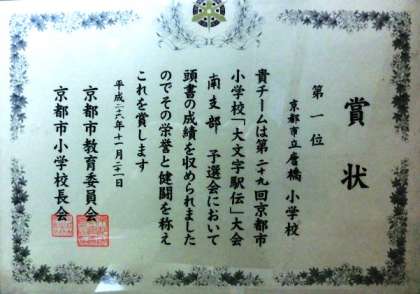 賞状
第一位
京都市立唐橋小学校
貴チームは第二十九回京都市
小学校「大文字駅伝」大会
南支部 予選会において
頭書の成績を収められました
のでその栄誉と健闘を称え
これを賞します
平成二六年十一月二一日
京都市教育委員会
京都市小学校長会